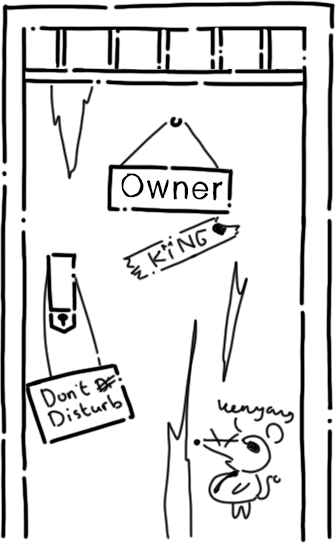 Owner
KiNG
Don't
Disturb
kenyang